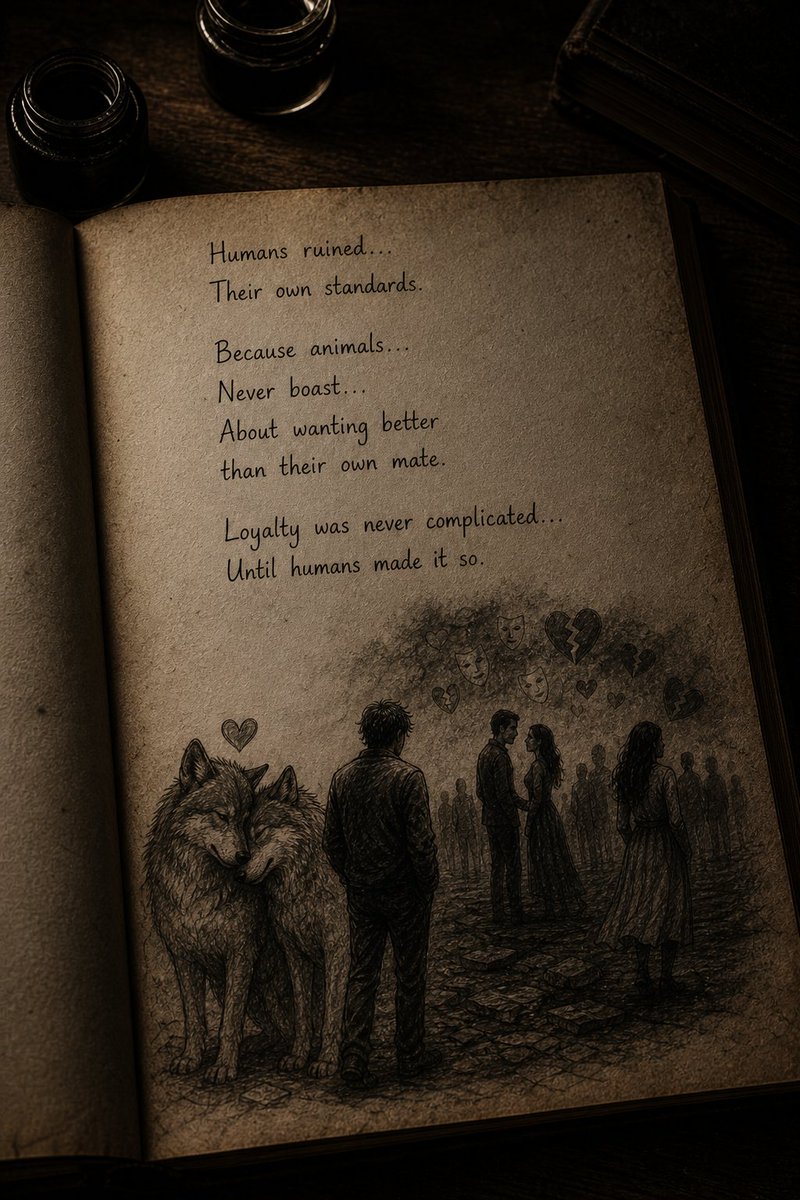 Humans ruined...
Their own standards.
Because animals...
Never boast...
About wanting better
than their own mate.
Loyalty was never complicated...
Until humans made it so.